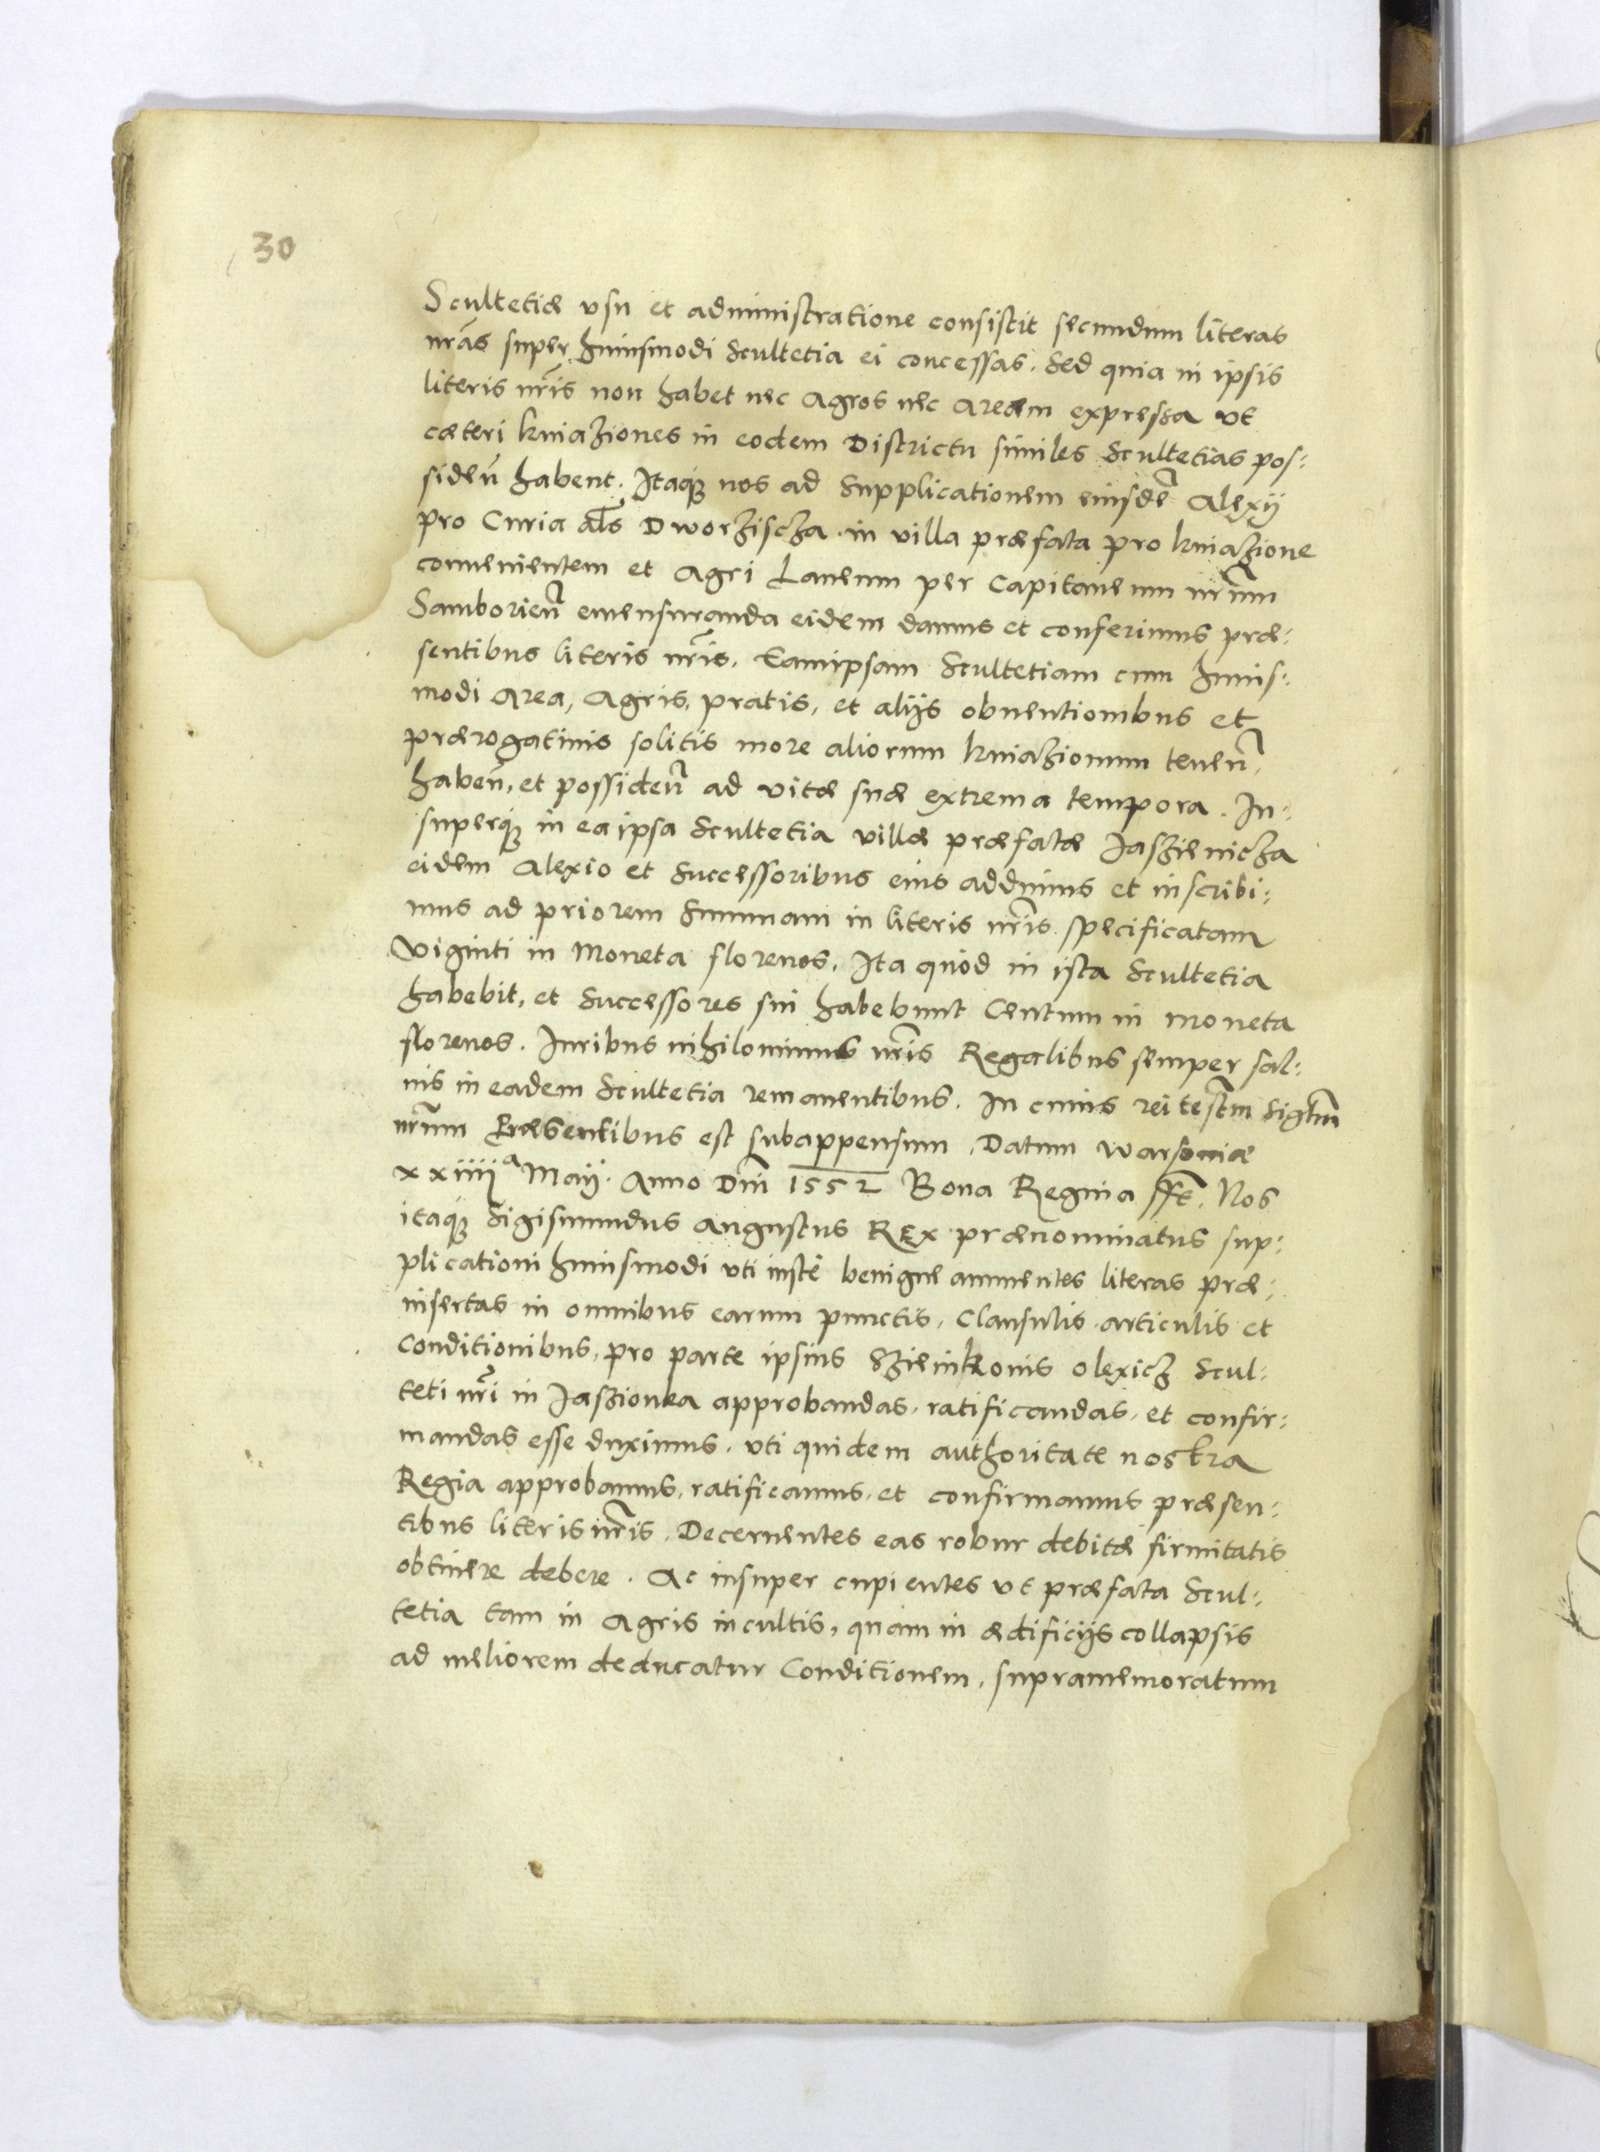 30
Scultetiæ vsu et administratione consistit secundum literas
nr̃as super huiusmodi Scultetia ei concessas. Sed quia in ipsis
literis nr̃is non habet nec Agros nec Aream expressa vt
cæteri kniaziones in eodem Districtu similes Scultetias pos-
siden̄ habent. Itaq3 nos ad Supplicationem eiusdē Alexij
pro Curia al̃s Dworzischa in villa præfata pro kniazione
conuenientem et Agri Laneum per Capitaneum nr̃um
Samborien̄ emensuranda eidem damus et conferimus præ-
sentibus literis nr̃is. Eamipsam Scultetiam cum huius-
modi Area, Agris, pratis, et alijs obuentionibus et
prærogatiuis solitis more aliorum kniazionum tenen̄,
haben̄, et possiden̄ ad vitæ suæ extrema tempora. In-
superq3 in ea ipsa Scultetia villæ præfatæ Jaszienicza
eidem Alexio et Successoribus eius addimus et inscribi-
mus ad priorem Summam in literis nr̃is specificatam
Viginti in Moneta florenos, Ita quòd in ista Scultetia
habebit, et Successores sui habebunt Centum in moneta
florenos. Iuribus nihilominus nr̃is Regalibus semper sal-
uis in eadem Scultetia remanentibus. In cuius rei testm̄ Siglm̄
nr̃um Præsentibus est subappensum. Datum Warsouiæ
xxiiijᵃ Maij. Anno Dn̄i 1552 Bona Regina sst̄. Nos
itaq3 Sigismundus Augustus REX prænominatus sup-
plicationi huiusmodi vti iustę benigne annuentes literas præ-
insertas in omnibus earum punctis, Clausulis articulis et
Conditionibus, pro parte ipsius Szienkonis olexicz Scul-
teti nr̃i in Jaszionka approbandas, ratificandas, et confir-
mandas esse duximus. vti quidem authoritate nostra
Regia approbamus, ratificamus, et confirmamus præsen-
tibus literis nr̃is. Decernentes eas robur debitæ firmitatis
obtinere debere. Ac insuper cupientes vt præfata Scul-
tetia tam in Agris incultis, quàm in ædificijs collapsis
ad meliorem deducatur Conditionem, supramemoratum